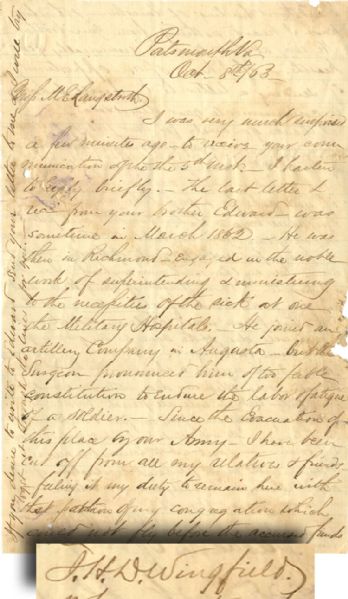 Portsmouth Va
Oct. 8th/63.
Miss M E Langstroth,
I was very much surprised
a few minutes ago - to receive your com
munication of the 5th inst. - I hasten
to reply briefly. - The last letter I
rec'd from your brother Edward - was
sometime in March 1862 - He was
then in Richmond - engaged in the noble
work of superintending & ministering
to the necessities of the sick at one
the Military Hospitals. - He joined an
artillery Company in Augusta - but the
Surgeon pronounced him of too feeble
constitution to endure the labor & fatigue
of a soldier. - Since the Evacuation of
this place by our Army - I have been
cut off from all my relatives & friends
- feeling it my duty to remain here with
that portion of my congregation which
could not fly before the
J. H. D. Wingfield.
If you desire to write to Edward send your letter to me & I will try